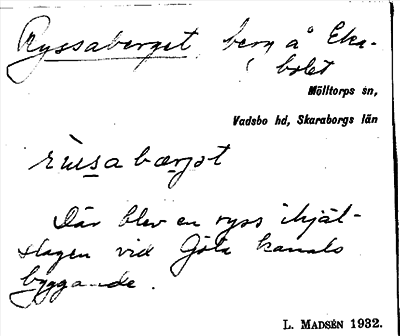 Ryssaberget, berg å Eke-
bolet
Mölltorps sn,
Vadsbo hd, Skaraborgs län
rùsabærjət
Där blev en ryss ihjäl-
slagen vid Göta kanals
byggande.
L. MADSÉN 1932.